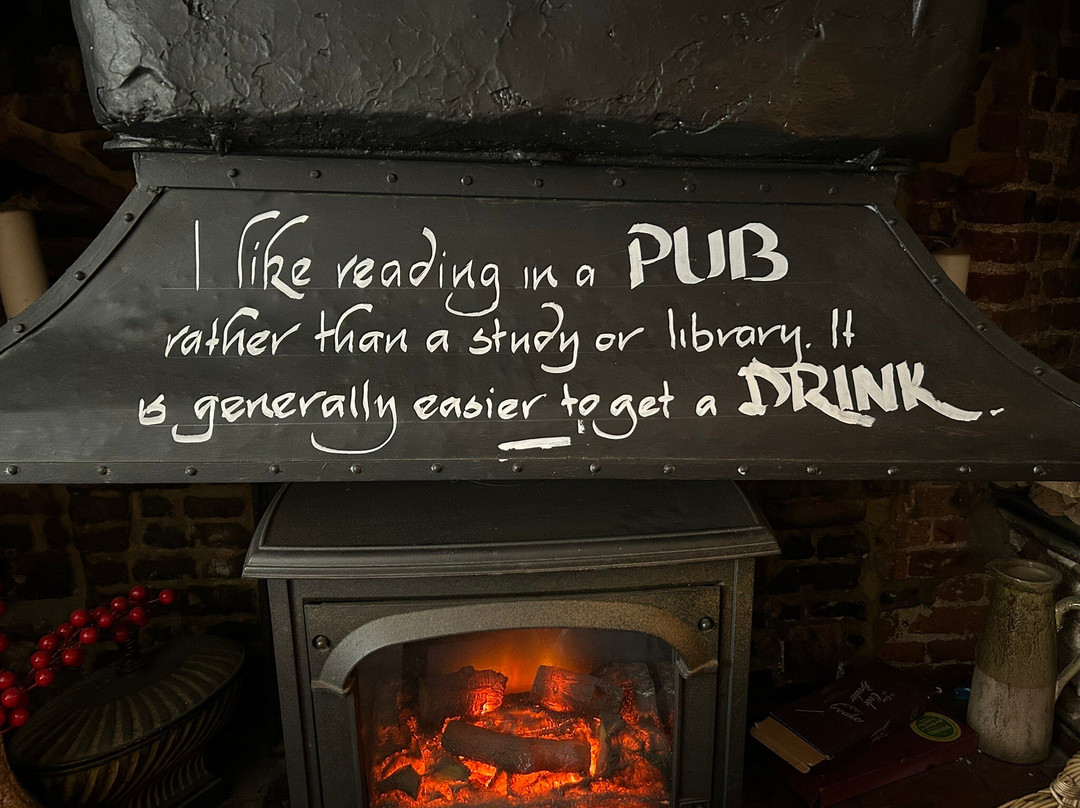 I like reading in a PUB
rather than a study or library. It
is generally easier to get a DRINK.